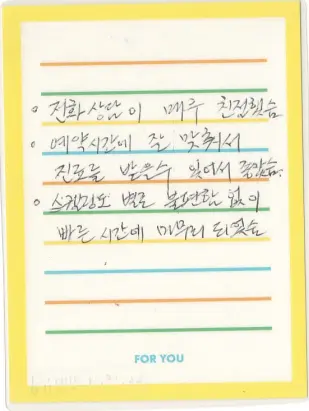 ◦ 전화상담이 매우 친절했음
◦ 예약시간에 잘 맞춰서
진료를 받을수 있어서 좋았음.
◦ 스켈링도 별로 불편함 없이
빠른 시간에 마무리 되었음
FOR YOU